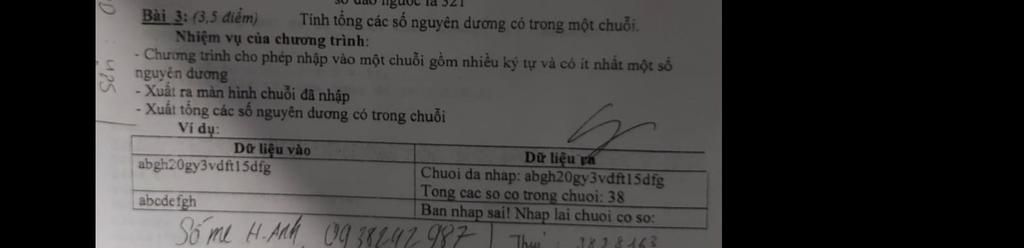 số đảo ngược là 321
Bài 3: (3,5 điểm) Tính tổng các số nguyên dương có trong một chuỗi.
Nhiệm vụ của chương trình:
- Chương trình cho phép nhập vào một chuỗi gồm nhiều ký tự và có ít nhất một số
nguyên dương
- Xuất ra màn hình chuỗi đã nhập
- Xuất tổng các số nguyên dương có trong chuỗi
Ví dụ:
Dữ liệu vào
Dữ liệu ra
abgh20gy3vdft15dfg
Chuoi da nhap: abgh20gy3vdft15dfg
Tong cac so co trong chuoi: 38
abcdefgh
Ban nhap sai! Nhap lai chuoi co so:
Số mẹ H.Anh 0938242987